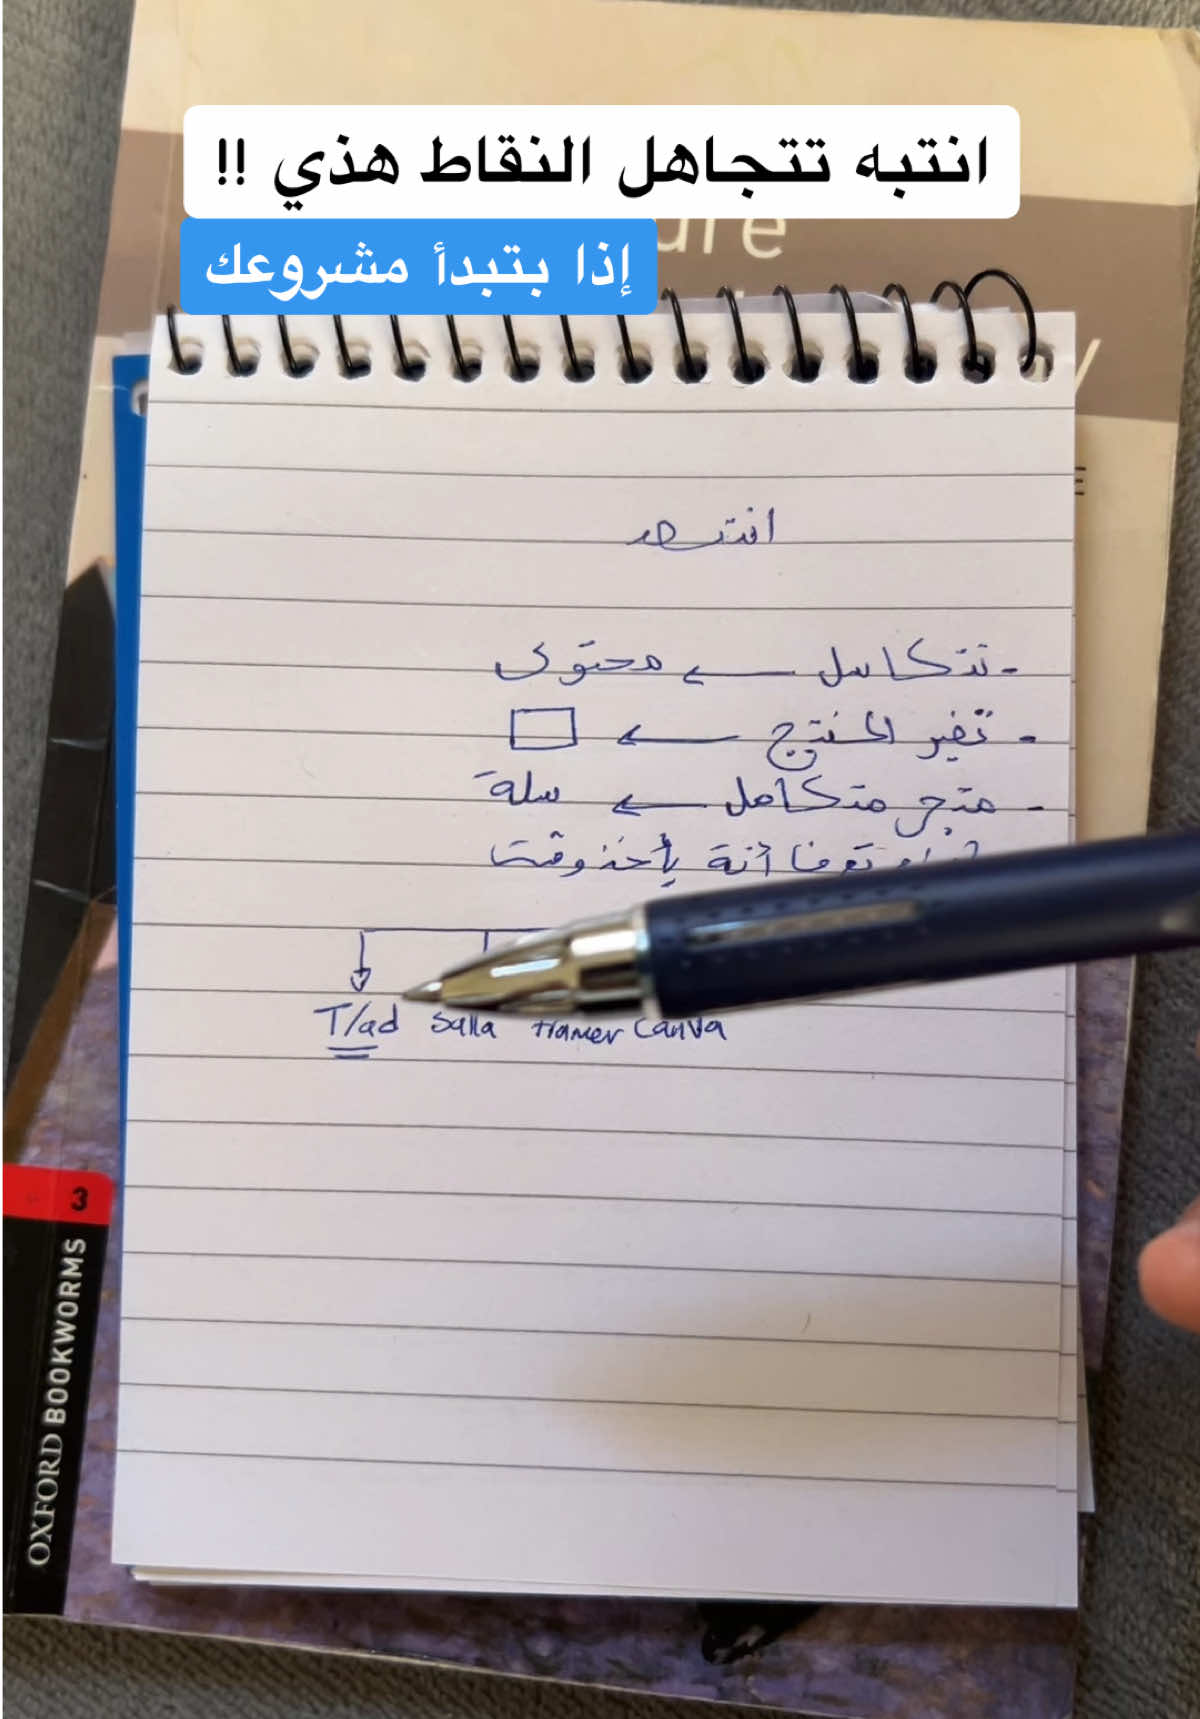 انتبه تتجاهل النقاط هذي !!
إذا بتبدأ مشروعك
انتبه
- تتكاسل ← محتوى
- تغير المنتج ←
- متجر متكامل ← سلة
تعرف أنة يأخذ وقت
T/ad Salla framer Canva
3
OXFORD BOOKWORMS